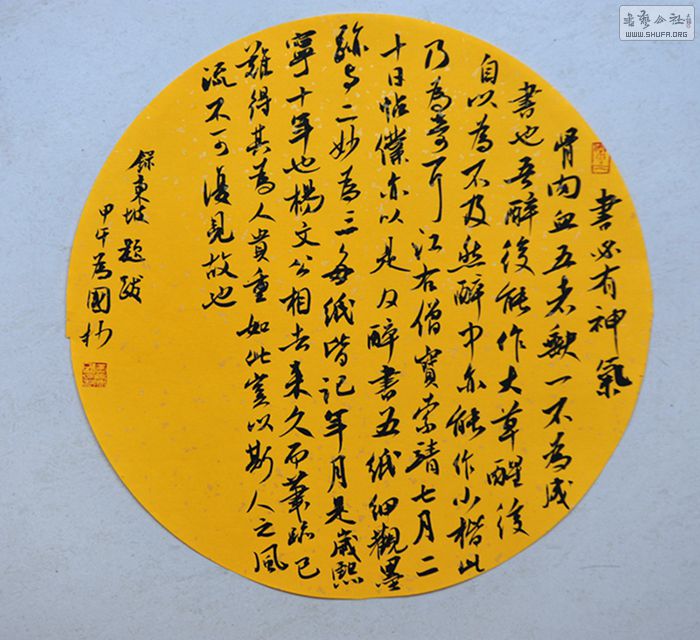 書必有神氣
骨肉血五者缺一不為成
書也吾醉後能作大草醒後
自以為不及然醉中亦能作小楷此
乃為奇耳江右僧寶索靖七月二
十日帖僕亦以是日醉書五紙細觀墨
跡与二妙為三每紙皆記年月是歲熙
寧十年也楊文公相去未久而筆跡已
難得其為人貴重如此豈以斯人之風
流不可復見故也
錄東坡題跋
甲午為國抄
书艺公社
WWW.SHUFA.ORG